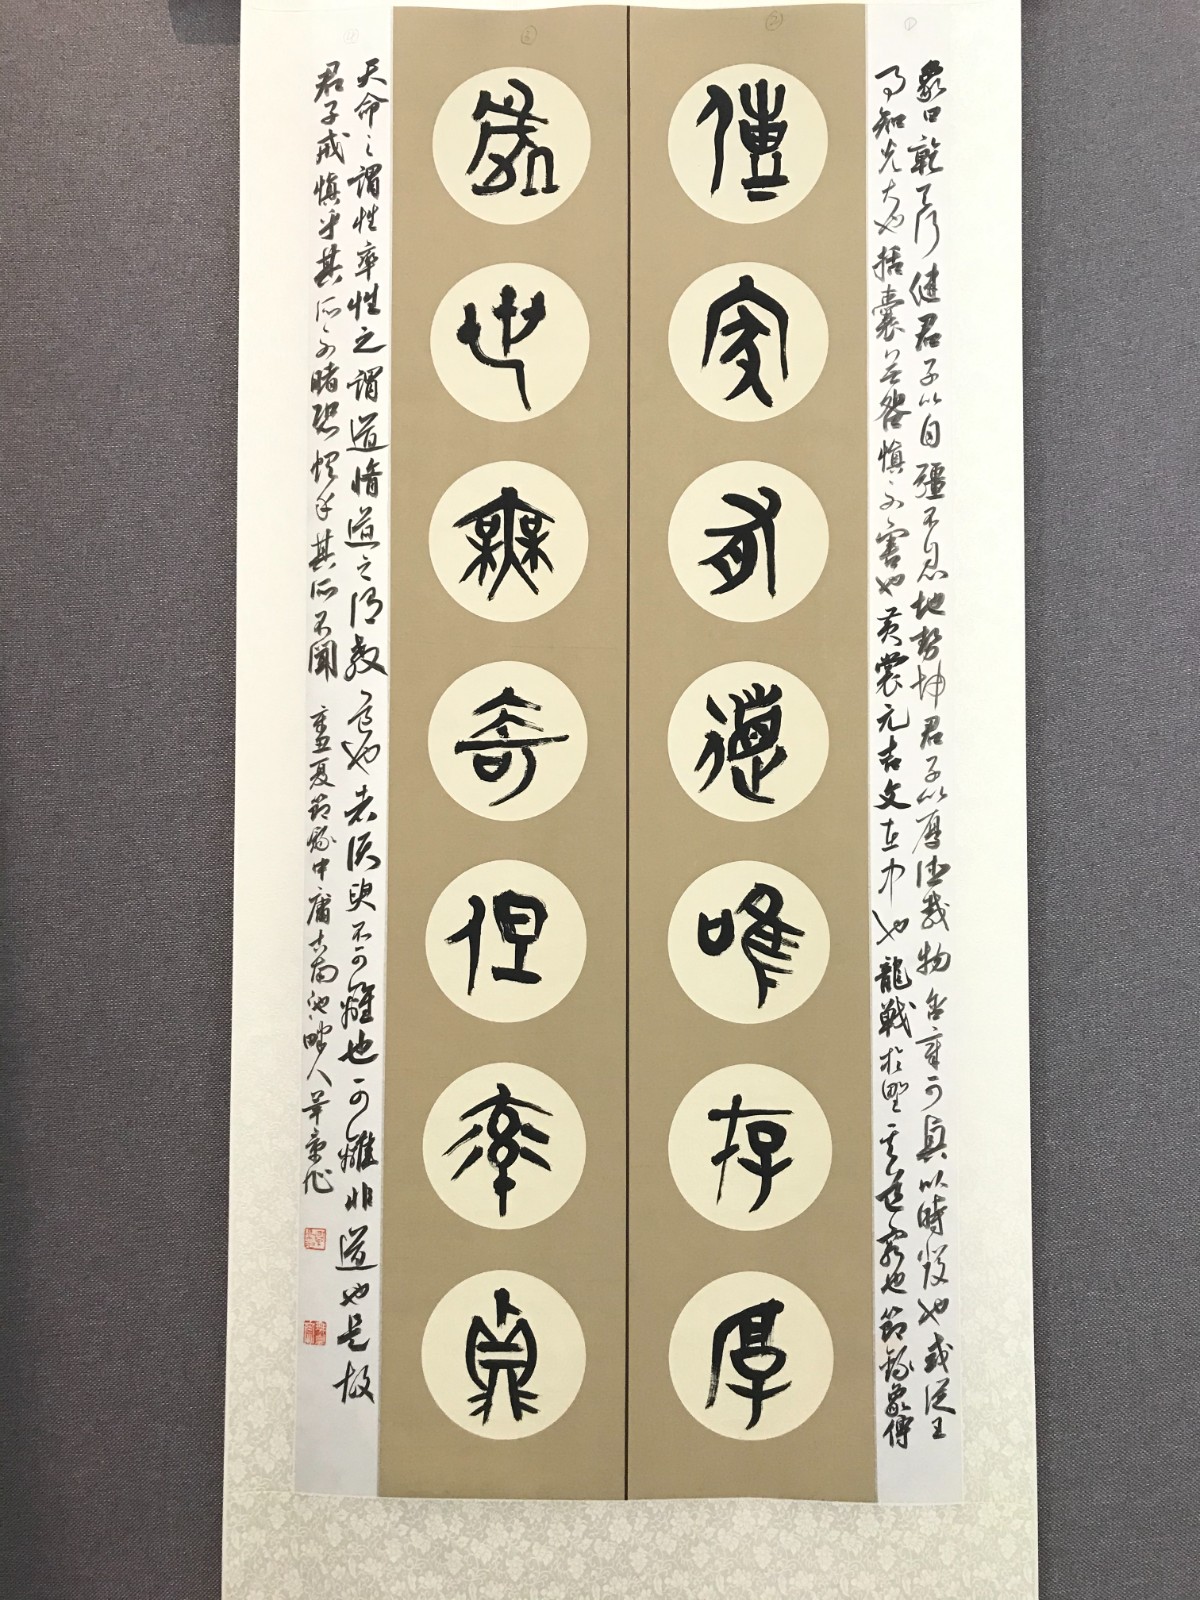 象曰乾天行健君子以自彊不息地勢坤君子以厚德載物含章可貞以時發也或從王
事知光大也括囊无咎慎不害也黃裳元吉文在中也龍戰於野其道窮也節錄象傳
傳家有德唯存厚
處世無奇但率真
天命之謂性率性之謂道脩道之謂教道也者須臾不可離也可離非道也是故
君子戒慎乎其所不睹恐懼乎其所不聞 辛丑夏節錄中庸古南池畔人